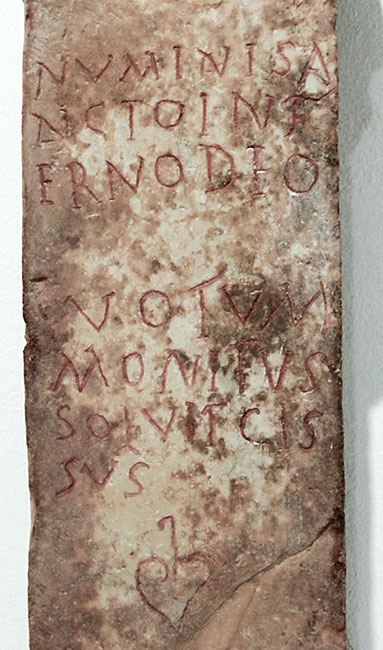 NVMINISA
NCTOINT
ERNODEO
VOTVM
MONITVS
SOLVITCIS
SVS